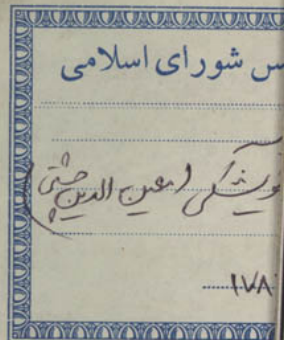 س شورای اسلامی
(معین الدین چشتی)
۱۷۸